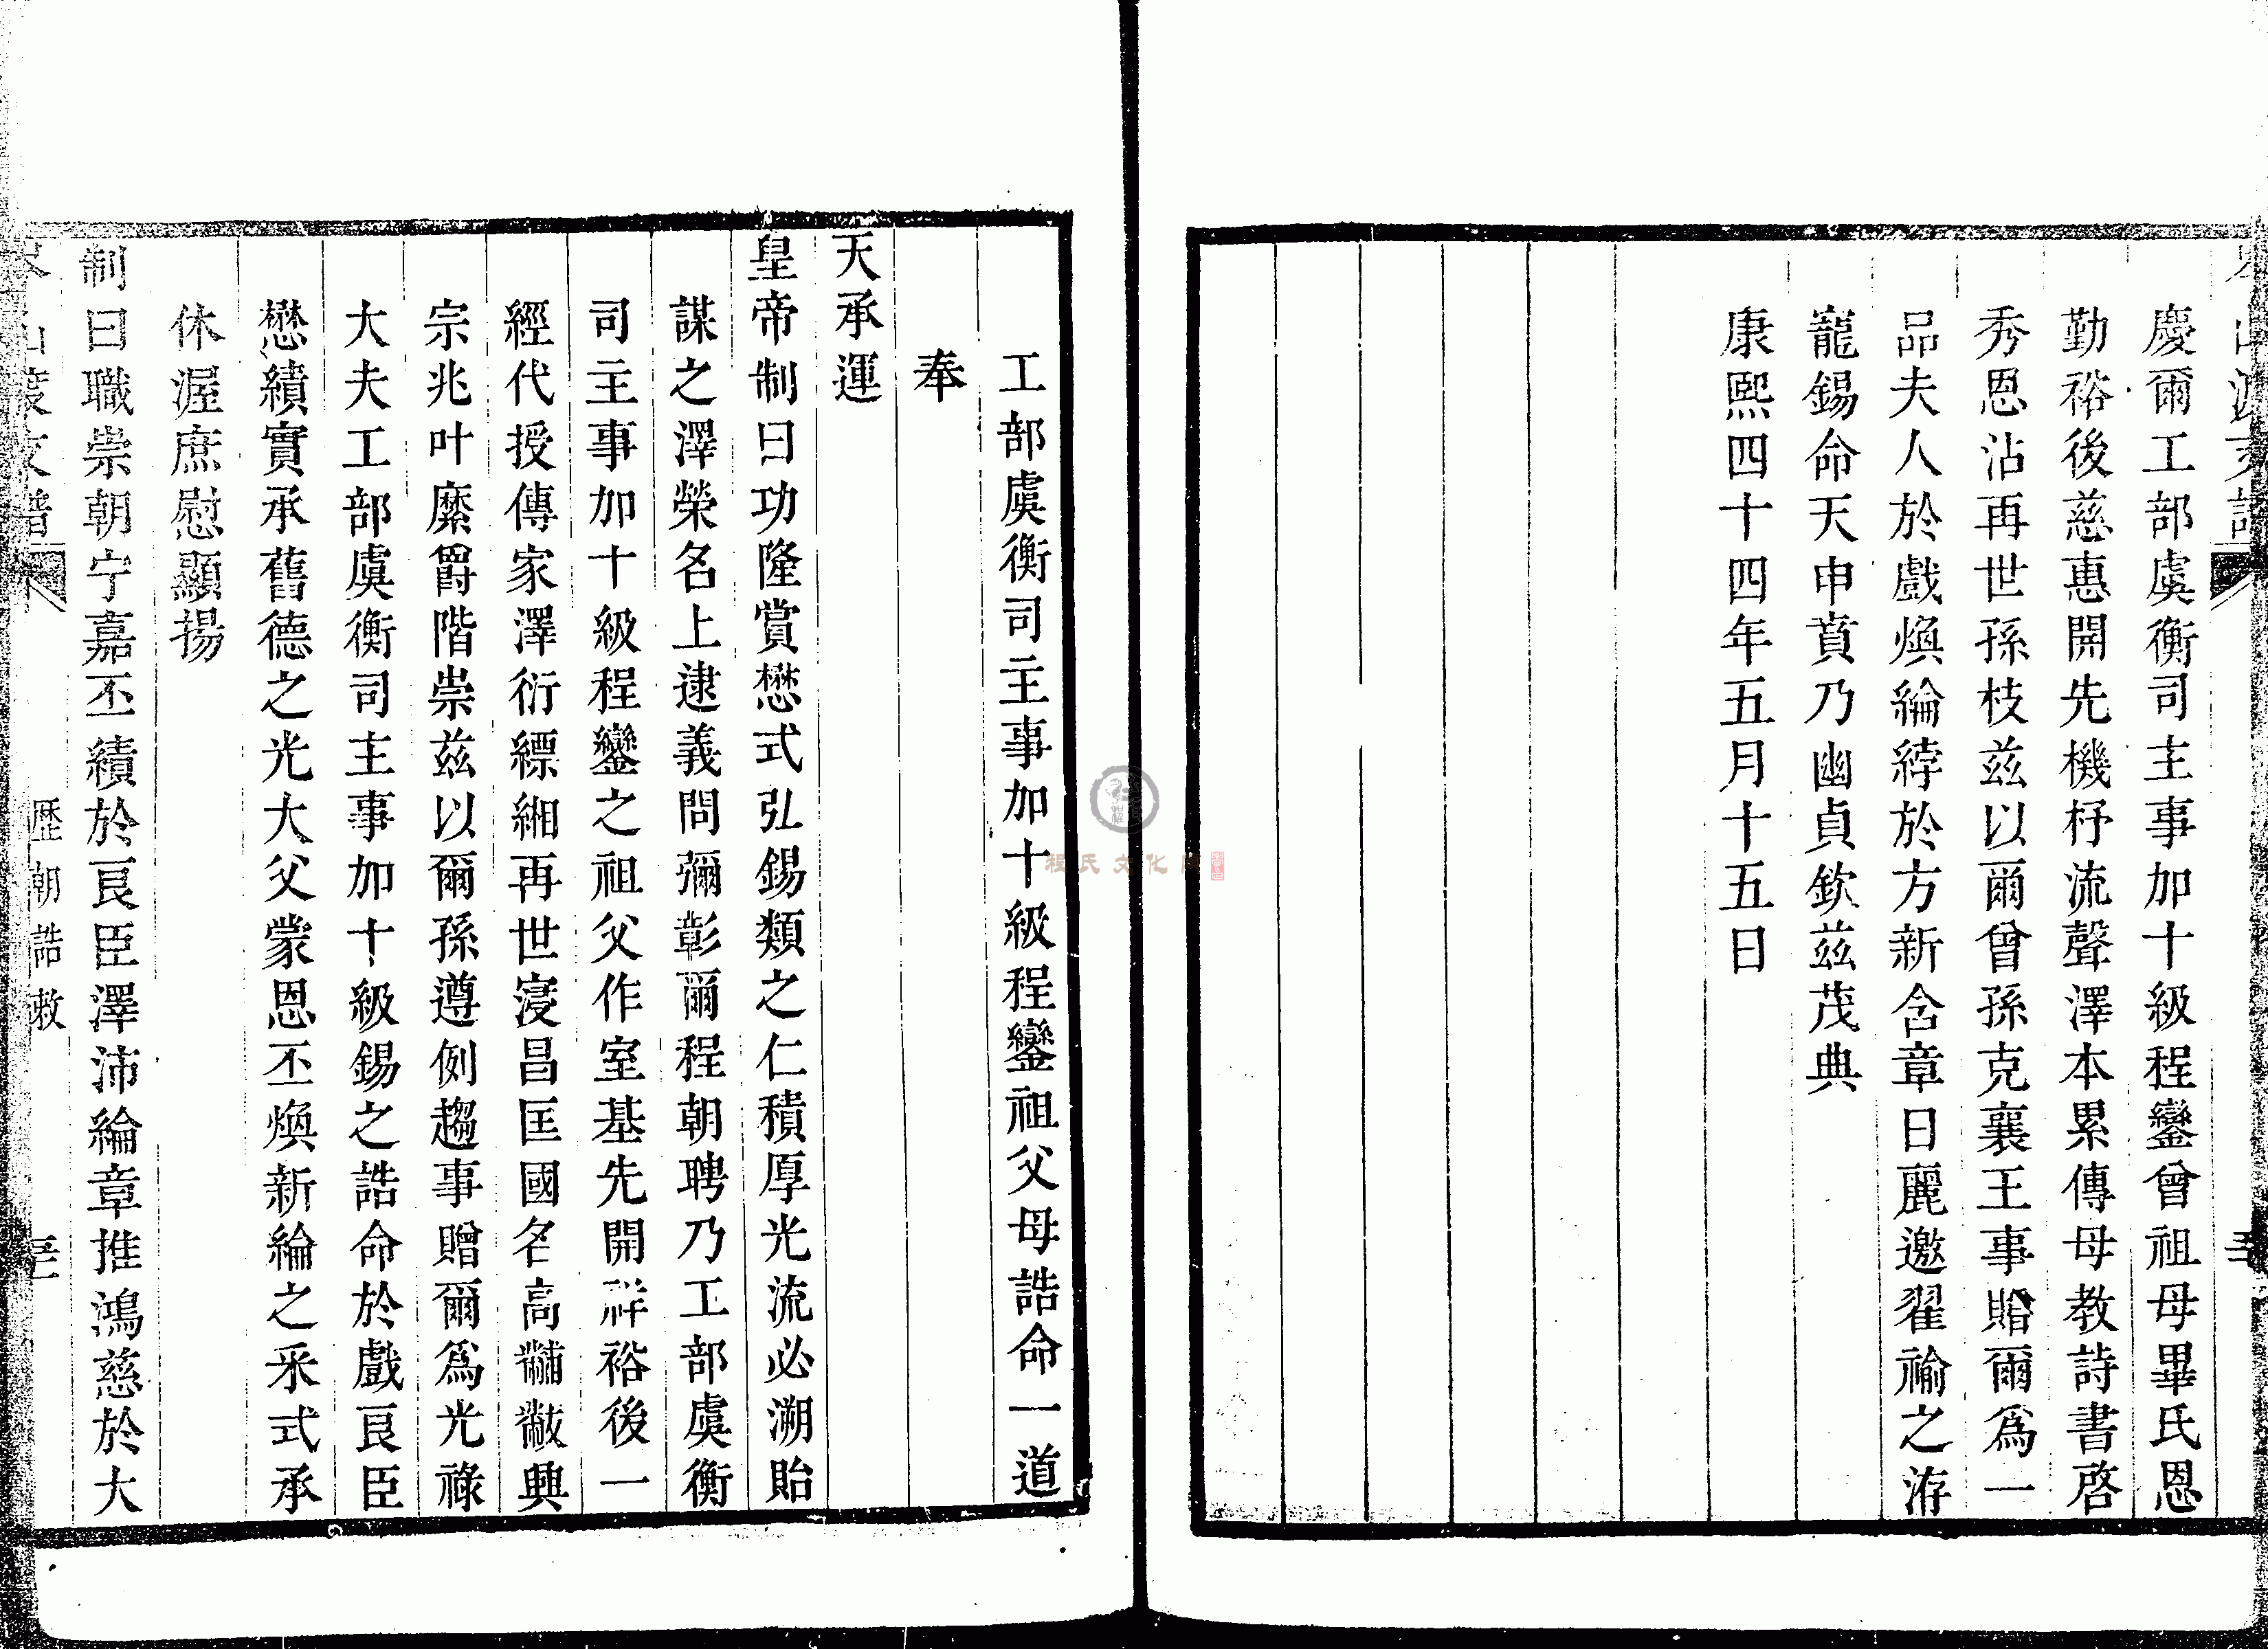 慶爾工部虞衡司主事加十級程鑾曾祖母畢氏恩
勤裕後慈惠開先機杼流聲澤本累傳母教詩書啓
秀恩沾再世孫枝茲以爾曾孫克襄王事贈爾爲一
品夫人於戲煥綸綍於方新含章日麗邀翟褕之洊
寵錫命天申賁乃幽貞欽茲茂典
康熙四十四年五月十五日
工部虞衡司主事加十級程鑾祖父母誥命一道
奉
天承運
皇帝制曰功隆賞懋式弘錫類之仁積厚光流必溯貽
謀之澤榮名上逮義問彌彰爾程朝聘乃工部虞衡
司主事加十級程鑾之祖父作室基先開祥裕後一
經代授傳家澤衍縹緗再世寖昌匡國名高黼黻興
宗兆叶縻爵階崇茲以爾孫遵例趨事贈爾爲光祿
大夫工部虞衡司主事加十級錫之誥命於戲良臣
懋績實承舊德之光大父蒙恩丕煥新綸之釆式承
休渥庶慰顯揚
制曰職崇朝宁嘉丕績於良臣澤沛綸章推鴻慈於大
歷朝誥敕